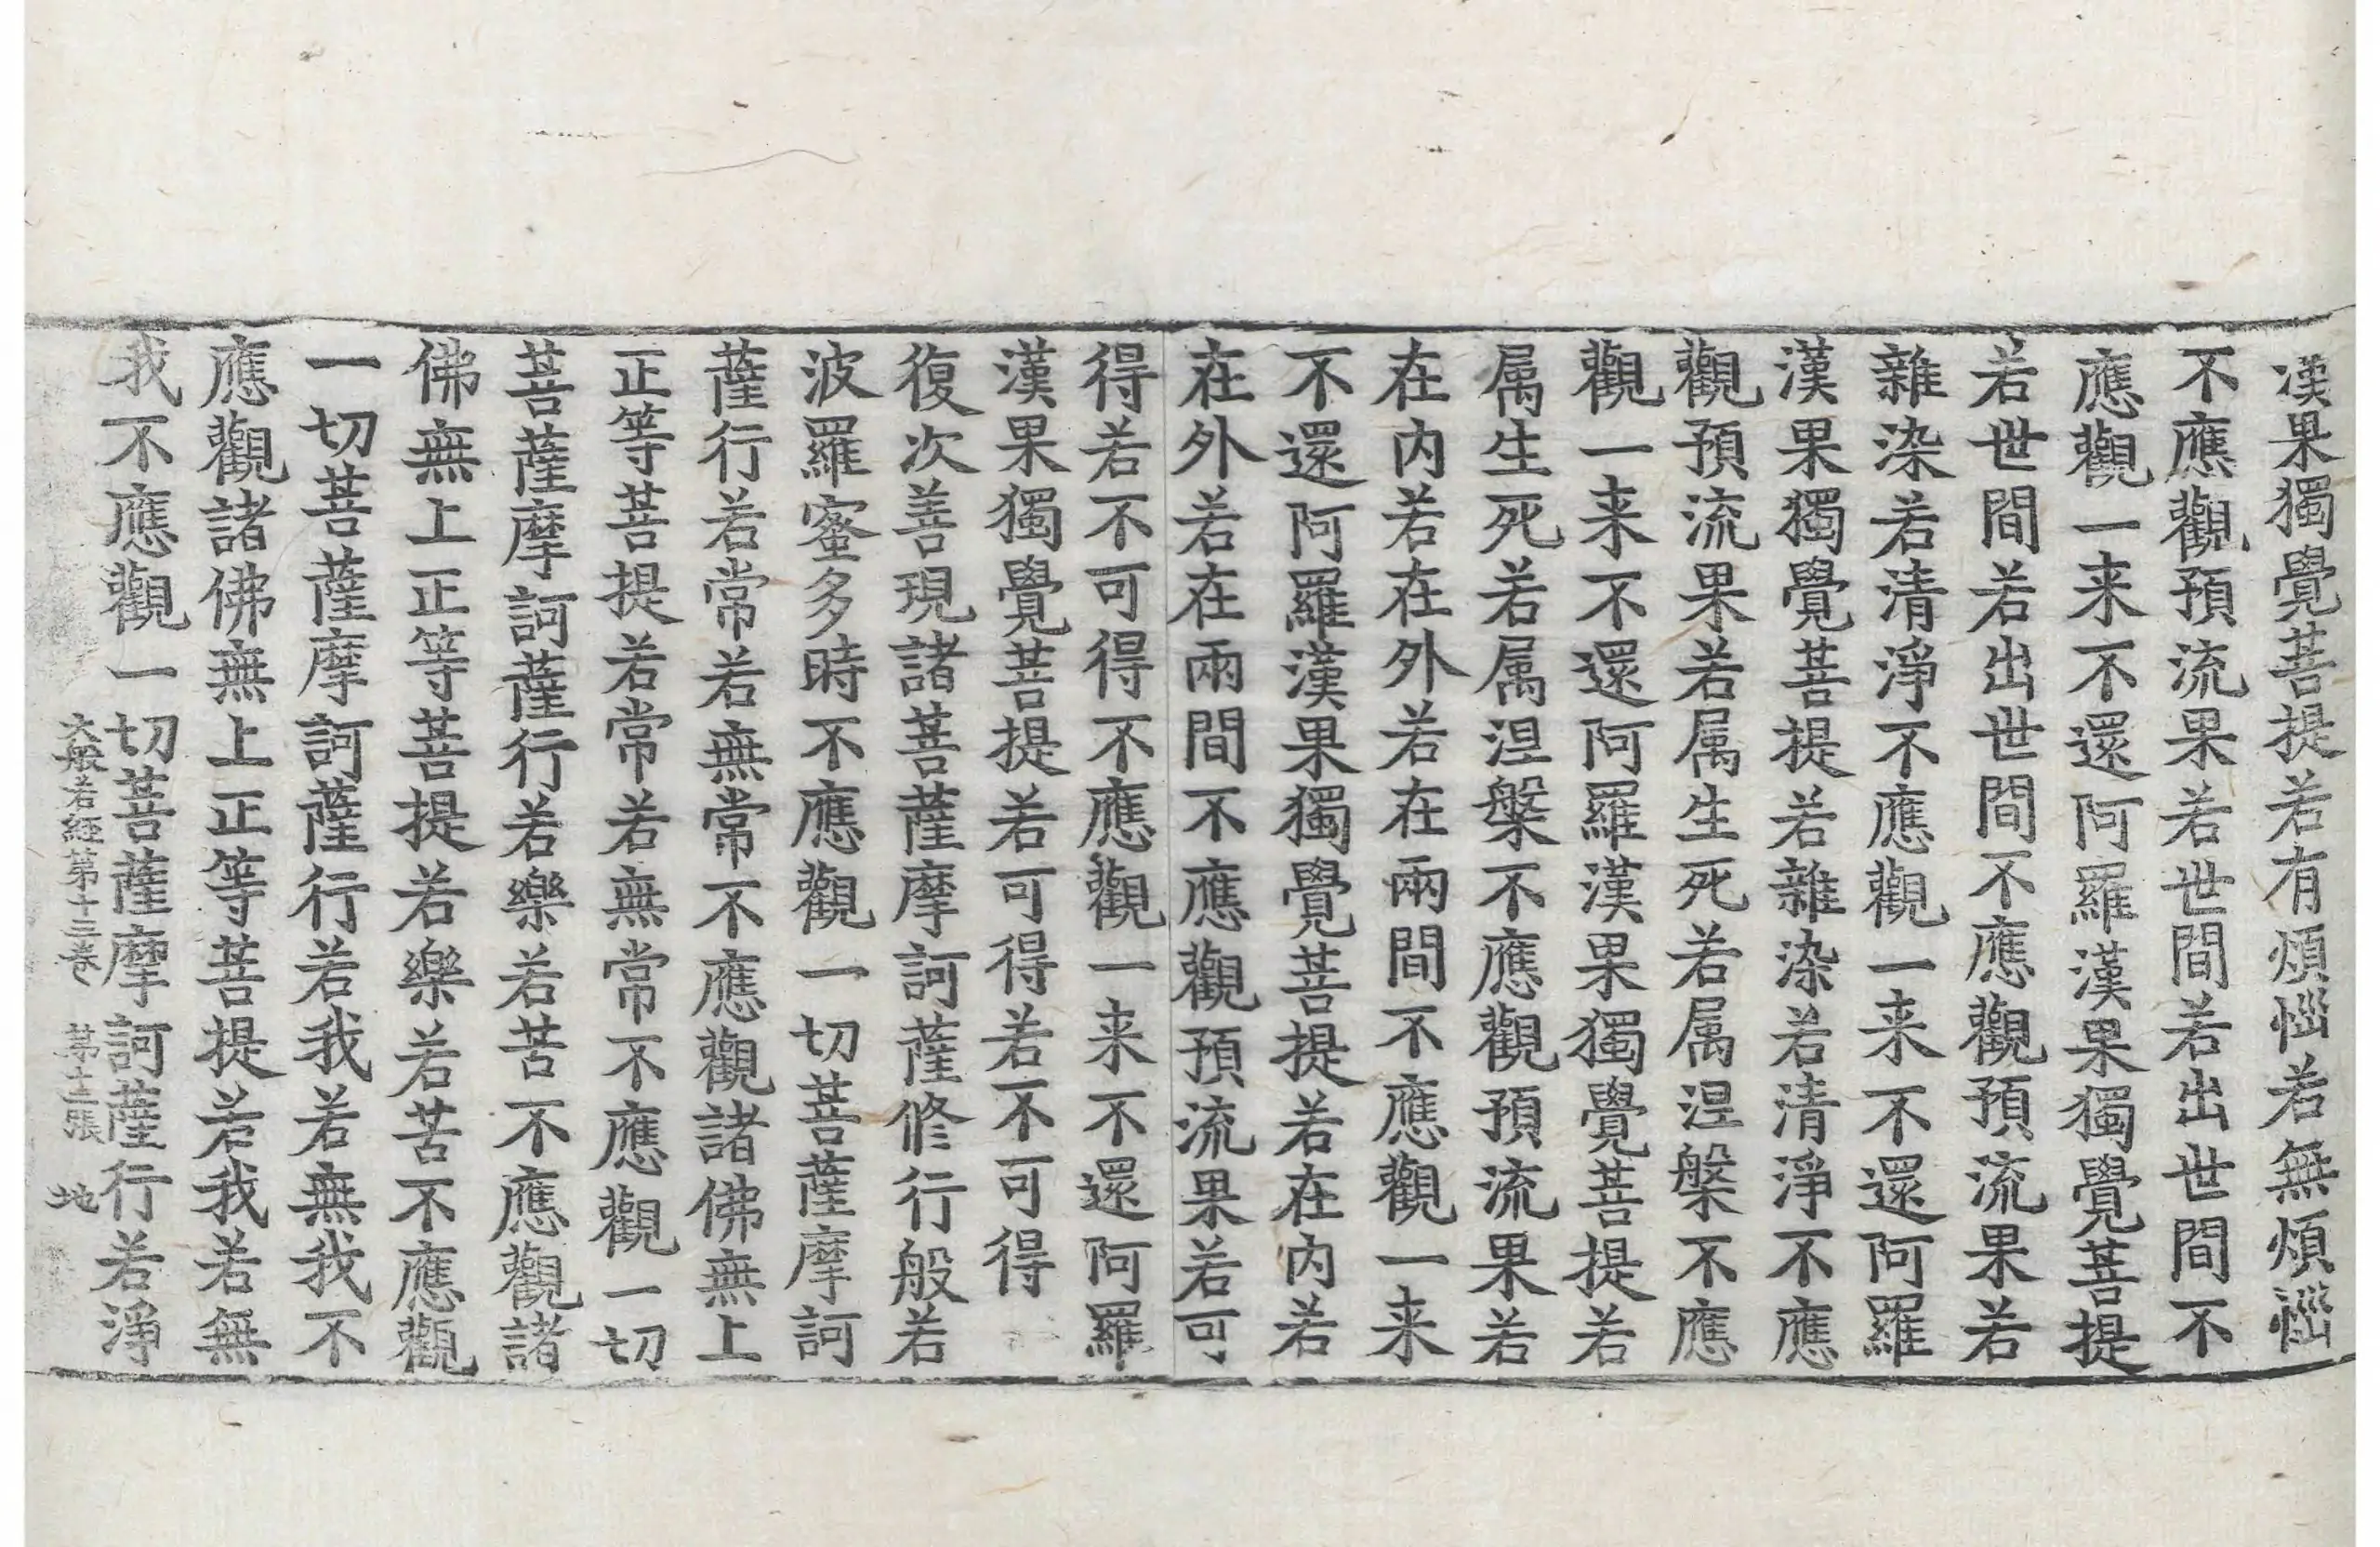 漢果獨覺菩提若有煩惱若無煩惱
不應觀預流果若世間若出世間不
應觀一来不還阿羅漢果獨覺菩提
若世間若出世間不應觀預流果若
雜染若清淨不應觀一来不還阿羅
漢果獨覺菩提若雜染若清淨不應
觀預流果若属生死若属涅槃不應
觀一来不還阿羅漢果獨覺菩提若
属生死若属涅槃不應觀預流果若
在内若在外若在兩間不應觀一来
不還阿羅漢果獨覺菩提若在内若
在外若在兩間不應觀預流果若可
得若不可得不應觀一来不還阿羅
漢果獨覺菩提若可得若不可得
復次善現諸菩薩摩訶薩修行般若
波羅蜜多時不應觀一切菩薩摩訶
薩行若常若無常不應觀諸佛無上
正等菩提若常若無常不應觀一切
菩薩摩訶薩行若樂若苦不應觀諸
佛無上正等菩提若樂若苦不應觀
一切菩薩摩訶薩行若我若無我不
應觀諸佛無上正等菩提若我若無
我不應觀一切菩薩摩訶薩行若淨
大般若經第十三卷 第十三張 地